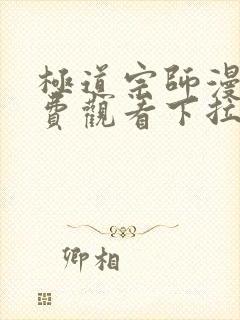 極道宗師漫
費觀看下拉
卿相